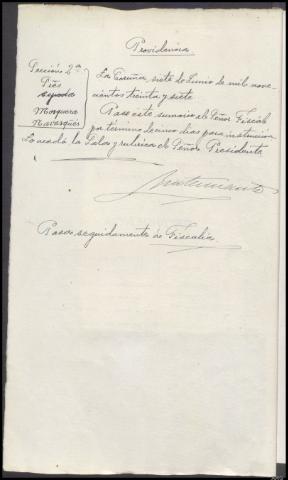 Providencia
Sección 2ª
Prós
Mosquera
Navasqués
La Coruña, siete de Junio de mil nove-
cientos treinta y siete
Pase este sumario al Señor Fiscal
por término de cinco dias para instrucción
Lo acordó la Sala y rubrica el Señor Presidente
Pasa seguidamente a Fiscalia